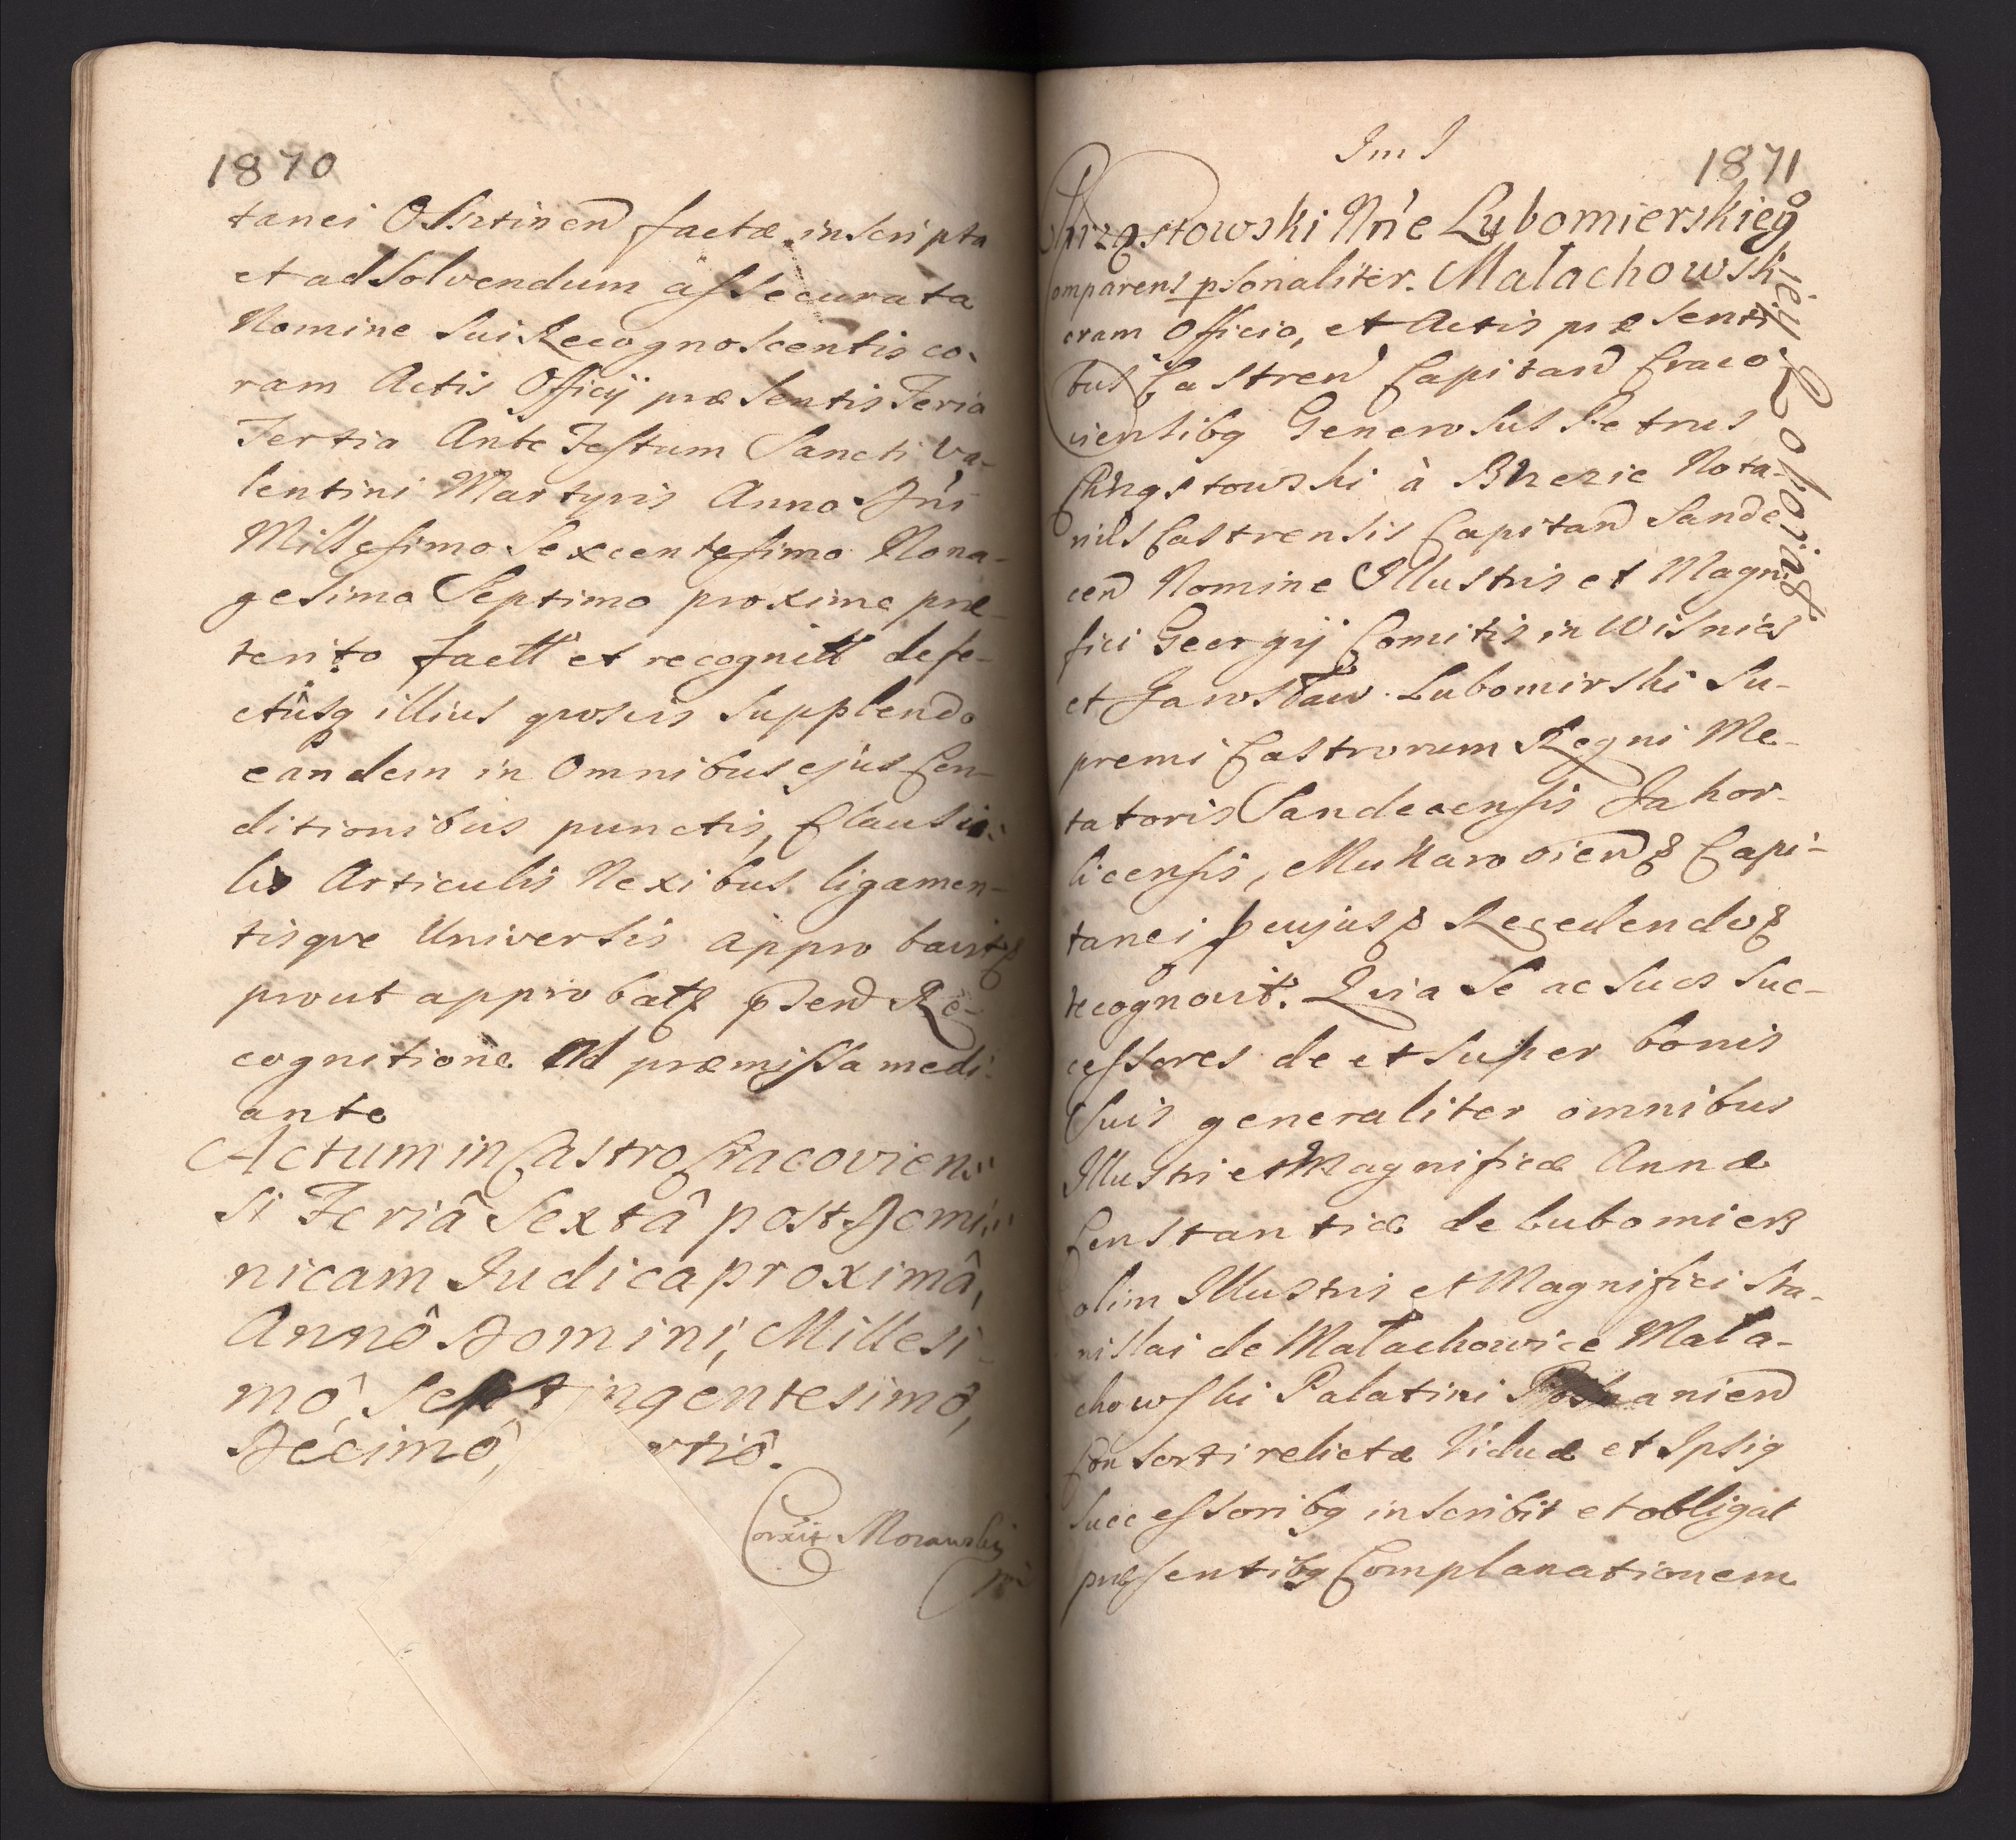 1870
tanei Osstinen factæ inscripta
et ad solvendum assecurata
Nomine sui Recognoscentis co-
ram Actis Officij præsentis Feria
Tertia Ante Festum Sancti Va-
lentini Martyris Anno Dni
Millesimo Sexcentesimo Nona-
gesimo Septimo proxime præ-
terito fact et recognit defe-
ctusq illius prosus supplendo
eandem in Omnibus ejus Con-
ditionibus punctis, Clausu-
lis Articulis Nexibus ligamen-
tisque Universis approbavit
prout approbat psen Re-
cognitione Ad præmissa medi-
ante
Actum in Castro Cracovien-
si Feriâ Sextâ post Domi-
nicam Iudica proximâ,
Annô Domini, Millesi-
mô, Septingentesimô,
Decimô, rtiô.
Corexit Morawski
Im I
1871
Chrząstowski Nne Lubomierskieg
Małachowskiey Roboruig
Comparens psonaliter.
coram Officio, et Actis præsenti-
bus Castren Capitan Craco-
viensibq Generosus Petrus
Chrząstowski à Brezie Nota-
rius Castrensis Capitan Sande-
cen Nomine Illustris et Magni-
fici Georgij Comitis in Wisnicz
et Jarosław Lubomirski Su-
premi Castrorum Regni Me-
tatoris Sandecensis Jahor-
licensis, Mukarovien Capi-
tanei
recognovit. Quia Se ac suos Suc-
cessores de et super bonis
Suis generaliter omnibus
Illustri et Magnificæ Annæ
Constantiæ de Lubomierz
olim Illustris et Magnifici Sta-
nislai de Małachowice Mała-
chowski Palatini Posnanien
Consorti relictæ Viduæ et Ipsiq
Successoribq inscribit et obligat
præsentibq Complanationem